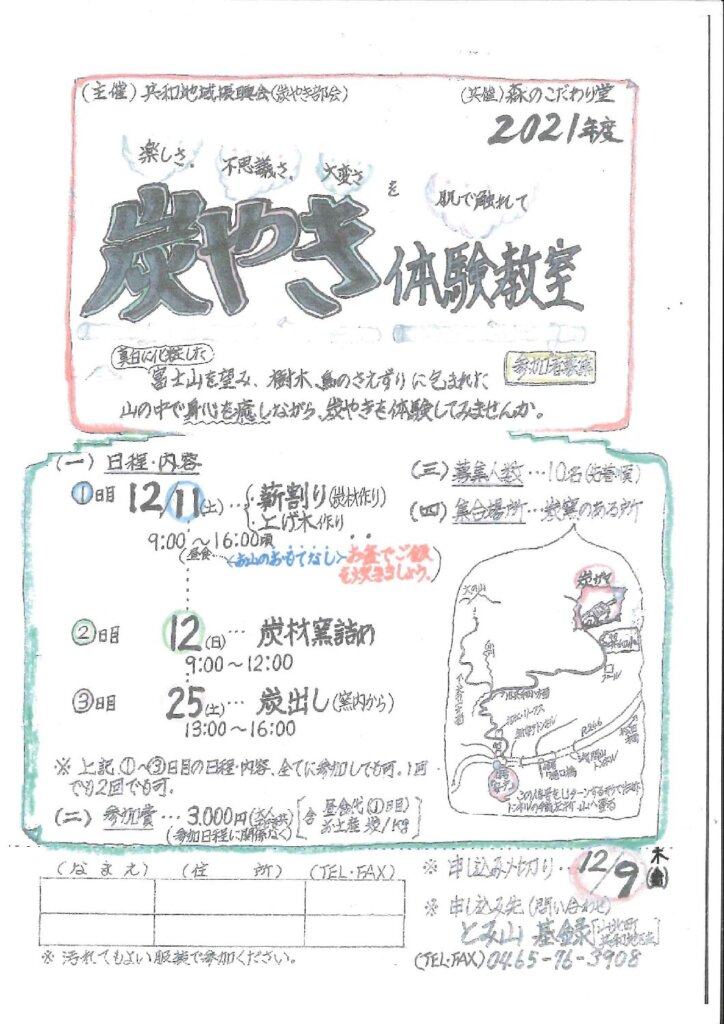 (主催) 共和地域振興会(炭やき部会)
(共催) 森のこだわり堂
2021年度
楽しさ、不思議さ、大変さを肌で触れて
炭やき体験教室
真白に化粧した
富士山を望み、樹木、鳥のさえずりに包まれた
参加者募集
山の中で身心を癒しながら、炭やきを体験してみませんか。
(一) 日程・内容
①日目 12/11(土)…薪割り(炭材作り)
上げ木作り
9:00〜16:00頃
昼食…〈お山のおもてなし〉お釜でご飯
も炊きましょう。
②日目 12(日)…炭材窯詰め
9:00〜12:00
③日目 25(土)…炭出し(窯内から)
13:00〜16:00
※上記、①〜③日目の日程・内容、全てに参加しても可。1回
でも2回でも可。
(二) 参加費…3,000円
(参加日程に関係なく)
含 昼食代(①日目)
お土産 炭/kg
(三) 募集人数…10名(先着順)
(四) 集合場所…炭窯のある所
炭がま
R246
(なまえ) (住 所) (TEL・FAX)
※汚れてもよい服装で参加ください。
※申し込み〆切り…12/9 木
※申し込み先(問い合わせ)
とみ山 基録
(TEL・FAX) 0465-76-3908